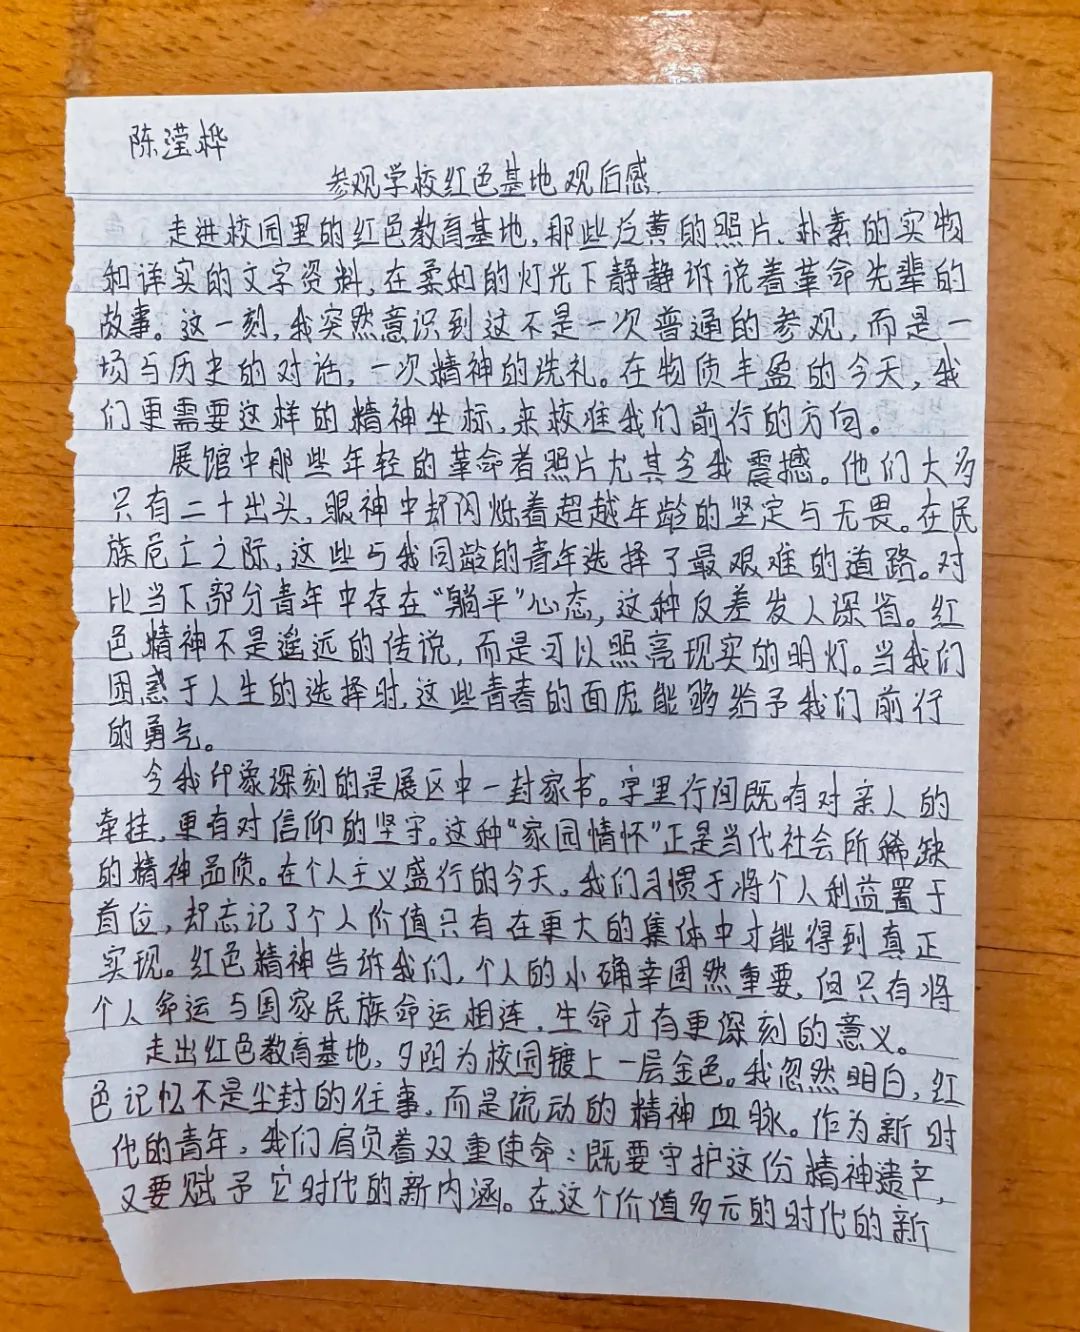 陈滢桦
参观学校红色基地观后感
走进校园里的红色教育基地,那些泛黄的照片、朴素的实物
和详实的文字资料,在柔和的灯光下静静诉说着革命先辈的
故事。这一刻,我突然意识到这不是一次普通的参观,而是一
场与历史的对话,一次精神的洗礼。在物质丰盈的今天,我
们更需要这样的精神坐标,来校准我们前行的方向。
展馆中那些年轻的革命者照片尤其令我震撼。他们大多
只有二十出头,眼神中却闪烁着超越年龄的坚定与无畏。在民
族危亡之际,这些与我同龄的青年选择了最艰难的道路。对
比当下部分青年中存在“躺平”心态,这种反差发人深省。红
色精神不是遥远的传说,而是可以照亮现实的明灯。当我们
困惑于人生的选择时,这些青春的面庞能够给予我们前行
的勇气。
令我印象深刻的是展区中一封家书。字里行间既有对亲人的
牵挂,更有对信仰的坚守。这种“家园情怀”正是当代社会所稀缺
的精神品质。在个人主义盛行的今天,我们习惯于将个人利益置于
首位,却忘记了个人价值只有在更大的集体中才能得到真正
实现。红色精神告诉我们,个人的小确幸固然重要,但只有将
个人命运与国家民族命运相连,生命才有更深刻的意义。
走出红色教育基地,夕阳为校园镀上一层金色。我忽然明白,红
色记忆不是尘封的往事,而是流动的精神血脉。作为新时
代的青年,我们肩负着双重使命:既要守护这份精神遗产,
又要赋予它时代的新内涵。在这个价值多元的时代的新